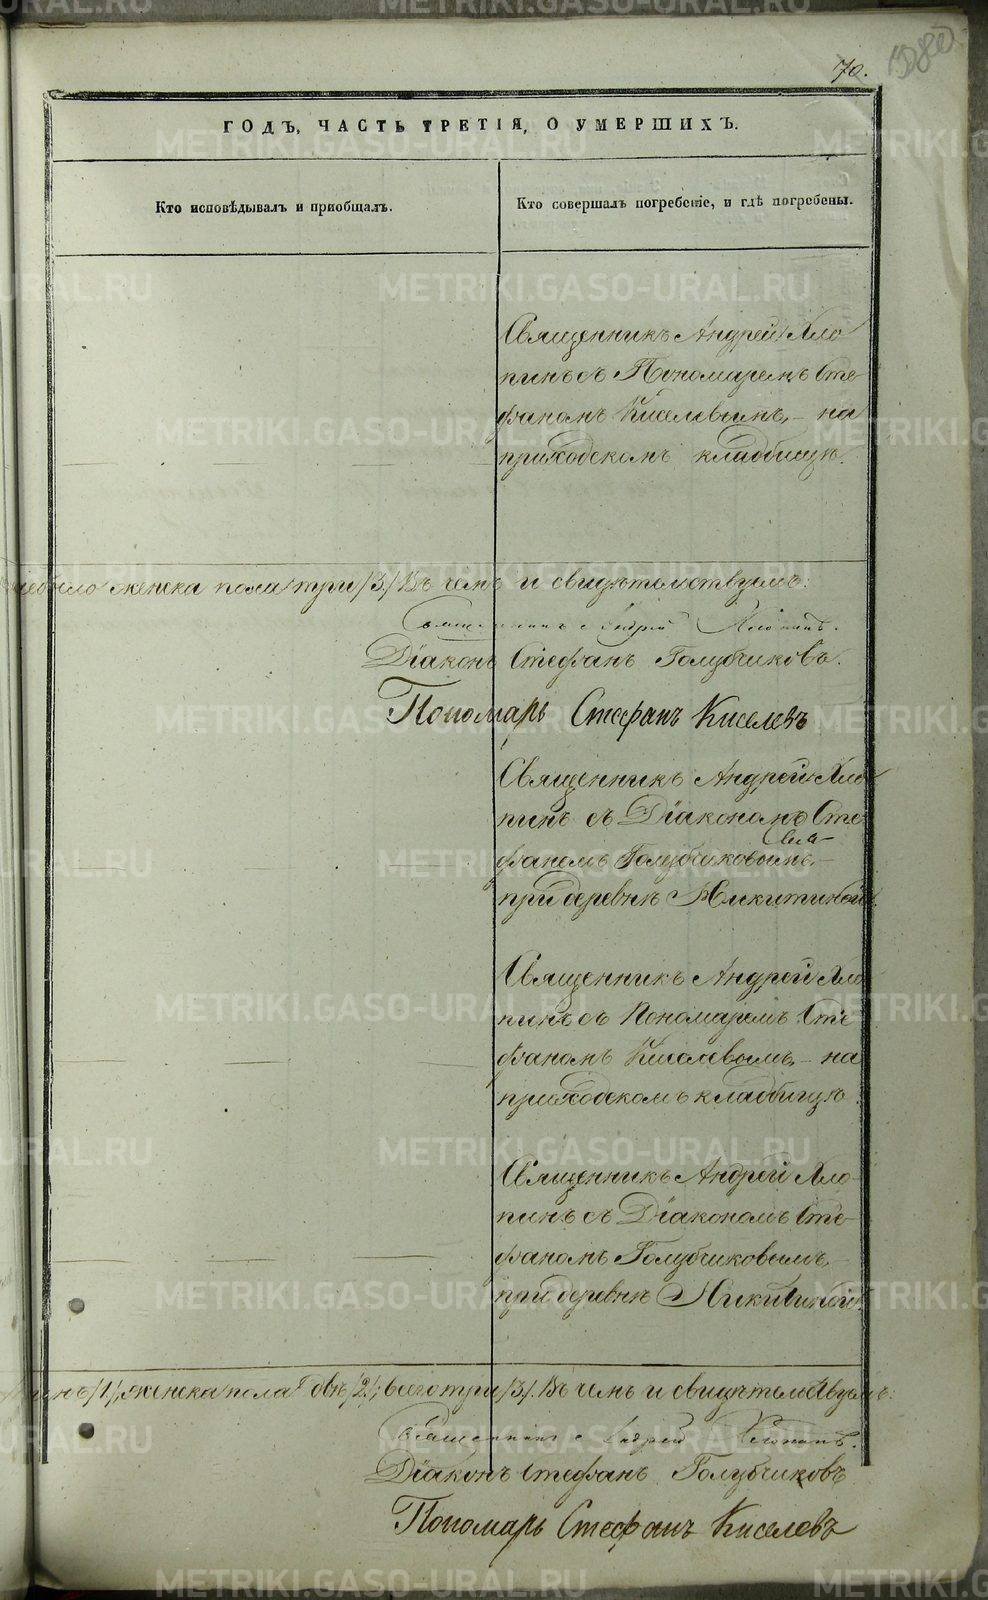 70.
ГОДЪ, ЧАСТЬ ТРЕТІЯ, О УМЕРШИХЪ.
Кто исповѣдывалъ и приобщалъ.
Кто совершалъ погребеніе, и гдѣ погребены.
Священникъ Андрей Хло
пинъ съ Пономаремъ Сте
фаномъ Киселевымъ, – на
приходскомъ кладбищѣ.
женска пола три /3/. Въ чемъ и свидѣтельствуемъ:
Священникъ Андрей Хлопинъ.
Діаконъ Стефанъ Голубчиковъ.
Пономарь Стефанъ Киселевъ
Священникъ Андрей Хло
пинъ съ Діакономъ Сте
фаномъ Голубчиковымъ, –
при деревнѣ Никитиной.
Священникъ Андрей Хло
пинъ съ Пономаремъ Сте
фаномъ Киселевымъ, – на
приходскомъ кладбищѣ.
Священникъ Андрей Хло-
пинъ съ Діакономъ Сте-
фаномъ Голубчиковымъ, –
при деревнѣ Никитиной.
/1/, женска пола двѣ /2/; всего три /3/. Въ чемъ и свидѣтельствуемъ:
Священникъ Андрей Хлопинъ.
Діаконъ Стефанъ Голубчиковъ
Пономарь Стефанъ Киселевъ
METRIKI.GASO-URAL.RU